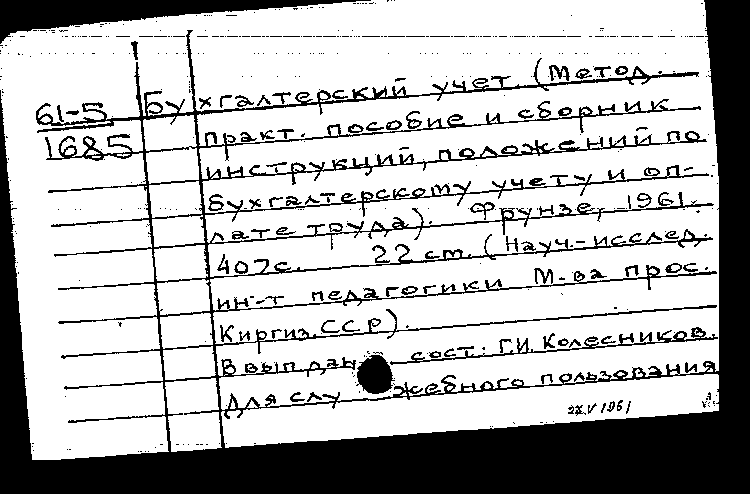 61-5 Бухгалтерский учет. (Метод.
1685 практ. пособие и сборник
инструкций, положений по
бухгалтерскому учету и оп-
лате труда). Фрунзе, 1961.
407с. 22 ст. (Науч.-исслед.
ин-т педагогики М-ва прос.
Киргиз. ССР).
В вып. дан. сост.: Г.И. Колесников.
Для служебного пользования